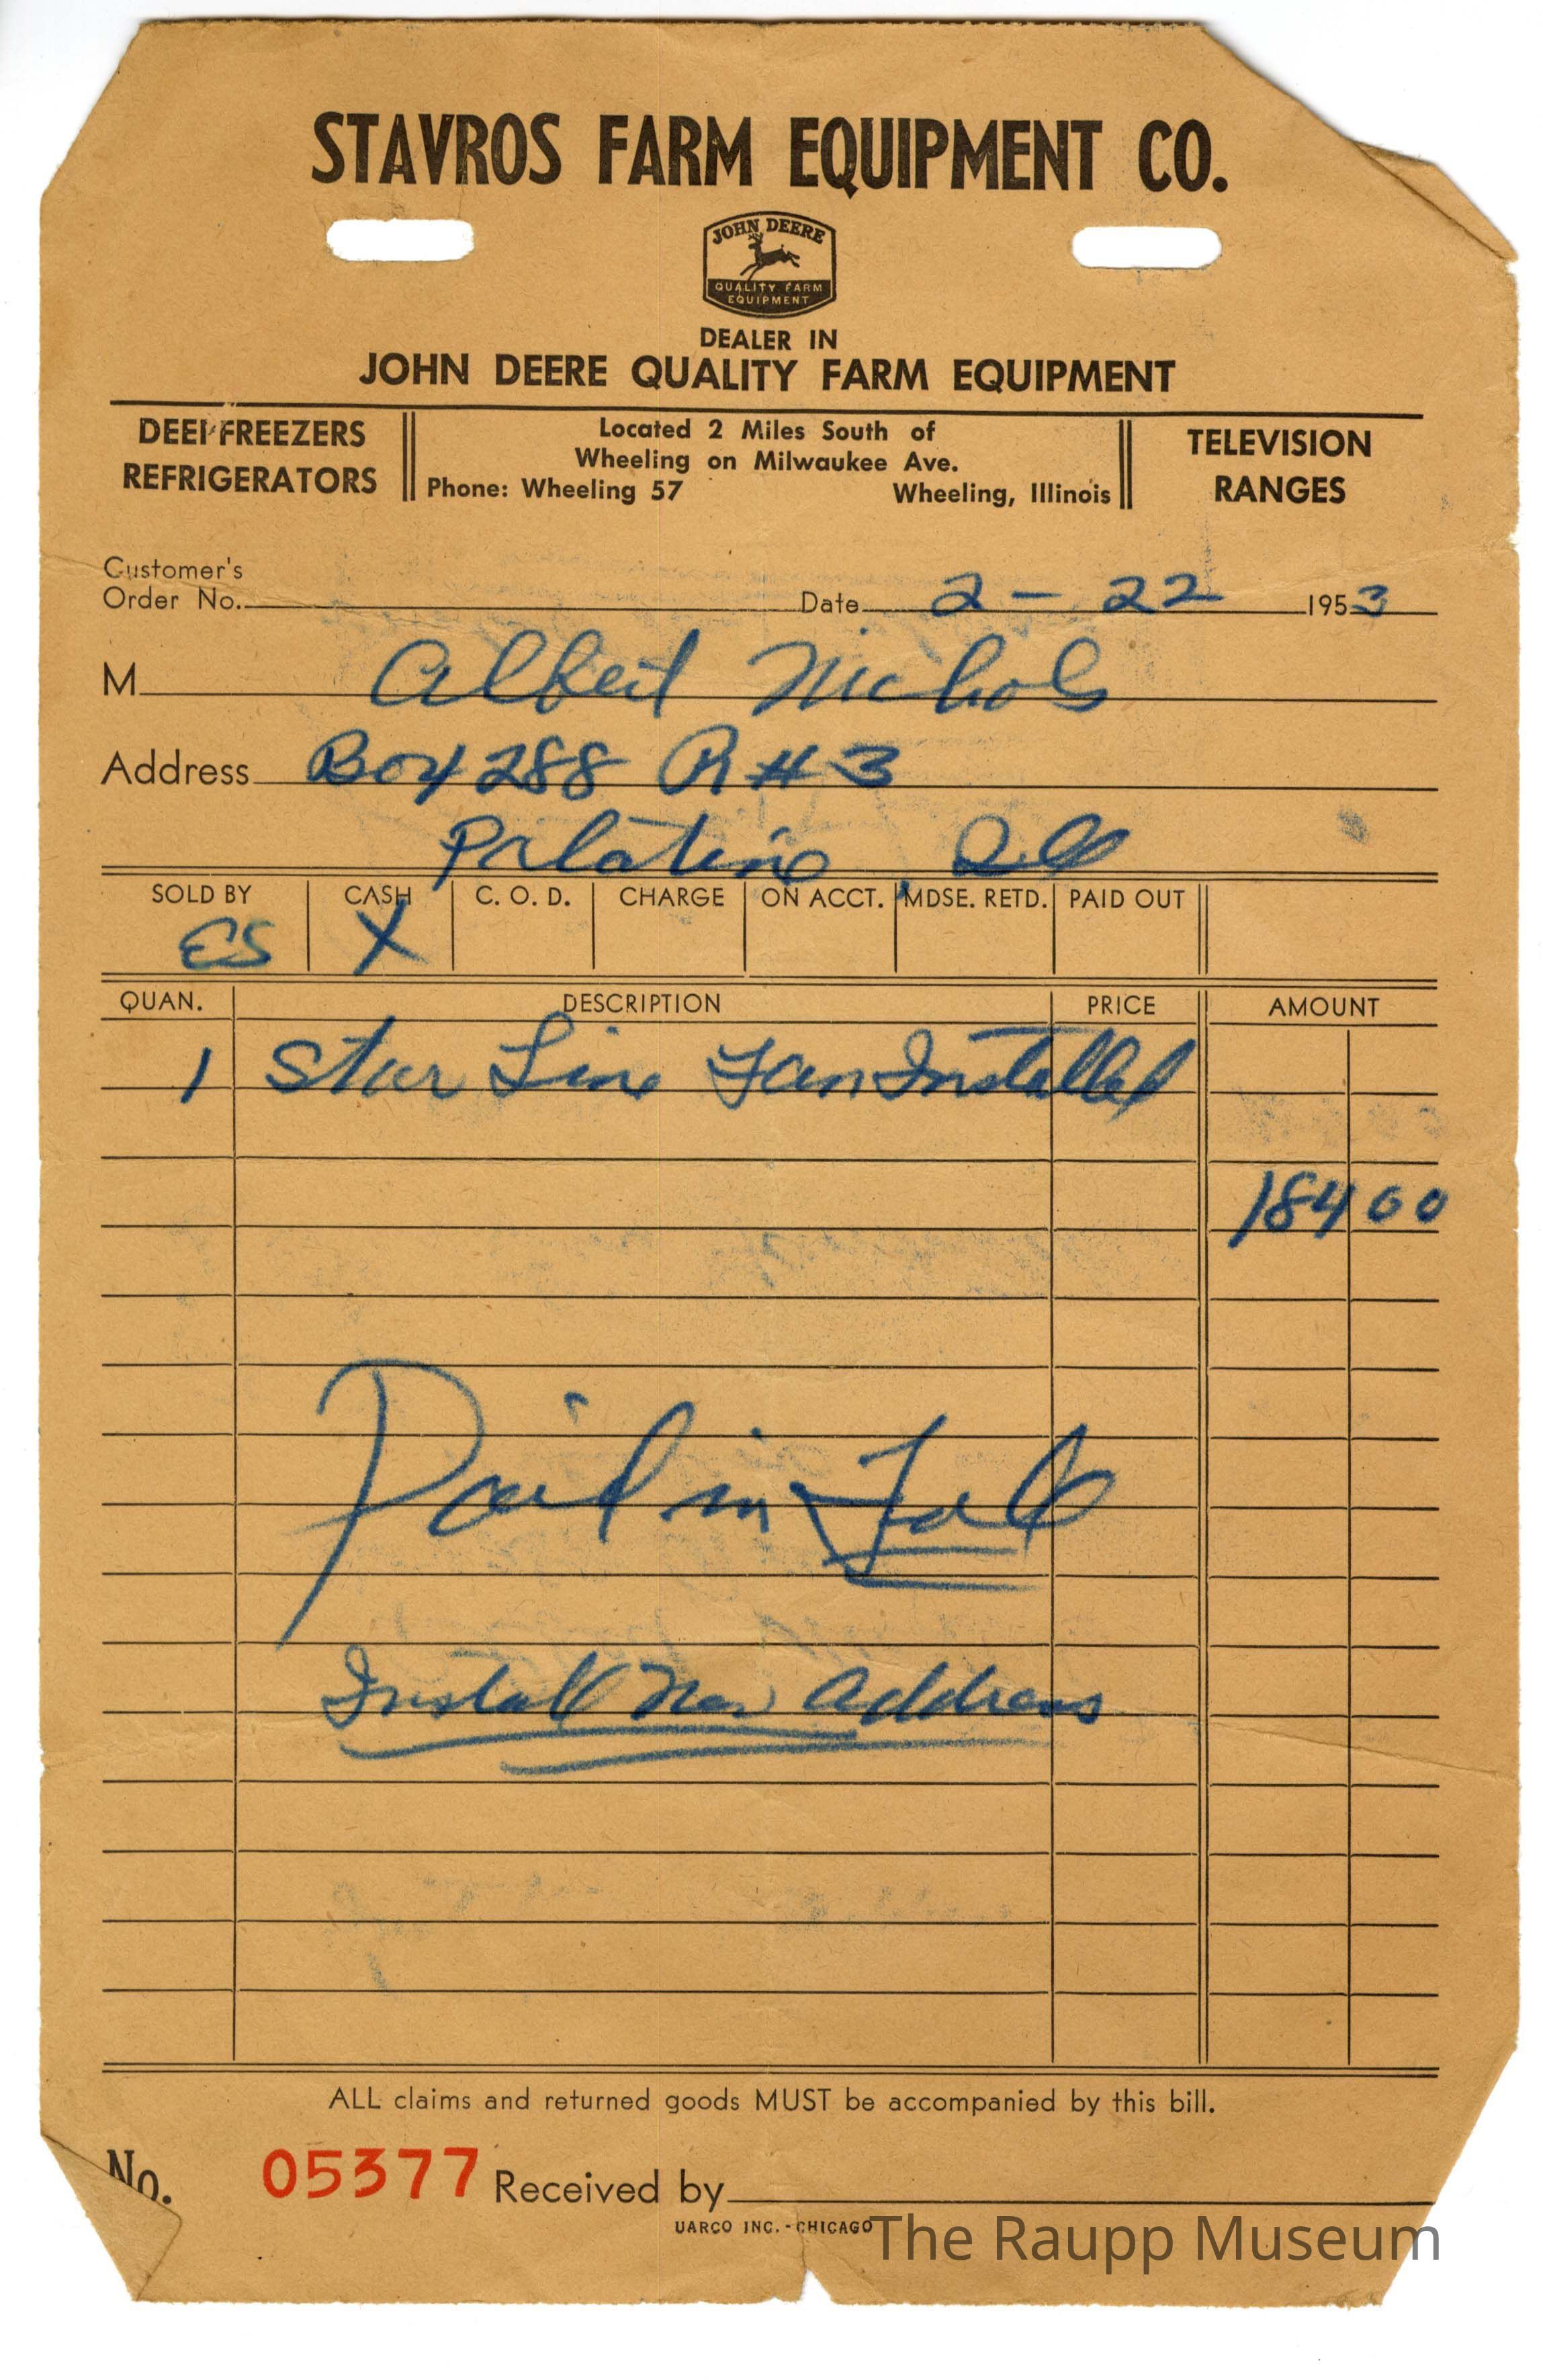 STAVROS FARM EQUIPMENT CO.
JOHN DEERE
QUALITY FARM
EQUIPMENT
DEALER IN
JOHN DEERE QUALITY FARM EQUIPMENT
DEEPFREEZERS
REFRIGERATORS
Located 2 Miles South of
Wheeling on Milwaukee Ave.
Phone: Wheeling 57 Wheeling, Illinois
TELEVISION
RANGES
Customer's
Order No. Date 2 - 22 1953
M Albert Nichols
Address Box 288 R # 3
Palatine, Ill
SOLD BY CASH C. O. D. CHARGE ON ACCT. MDSE. RETD. PAID OUT
ES X
QUAN. DESCRIPTION PRICE AMOUNT
1 Star Line Fan Installed
184 00
Paid in Full
Install New Address
ALL claims and returned goods MUST be accompanied by this bill.
No. 05377 Received by
UARCO INC. - CHICAGO
The Raupp Museum